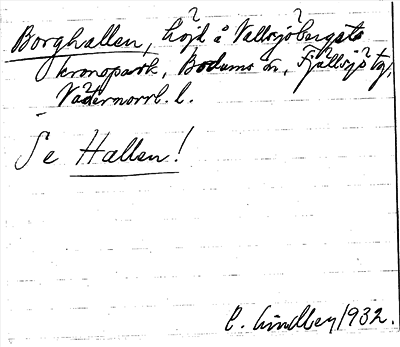 Borghallen, höjd å Vallsjöbergets
kronopark, Bodums sn, Fjällsjö tg,
Västernorrl. l.
Se Hallen!
C. Lindberg 1932.